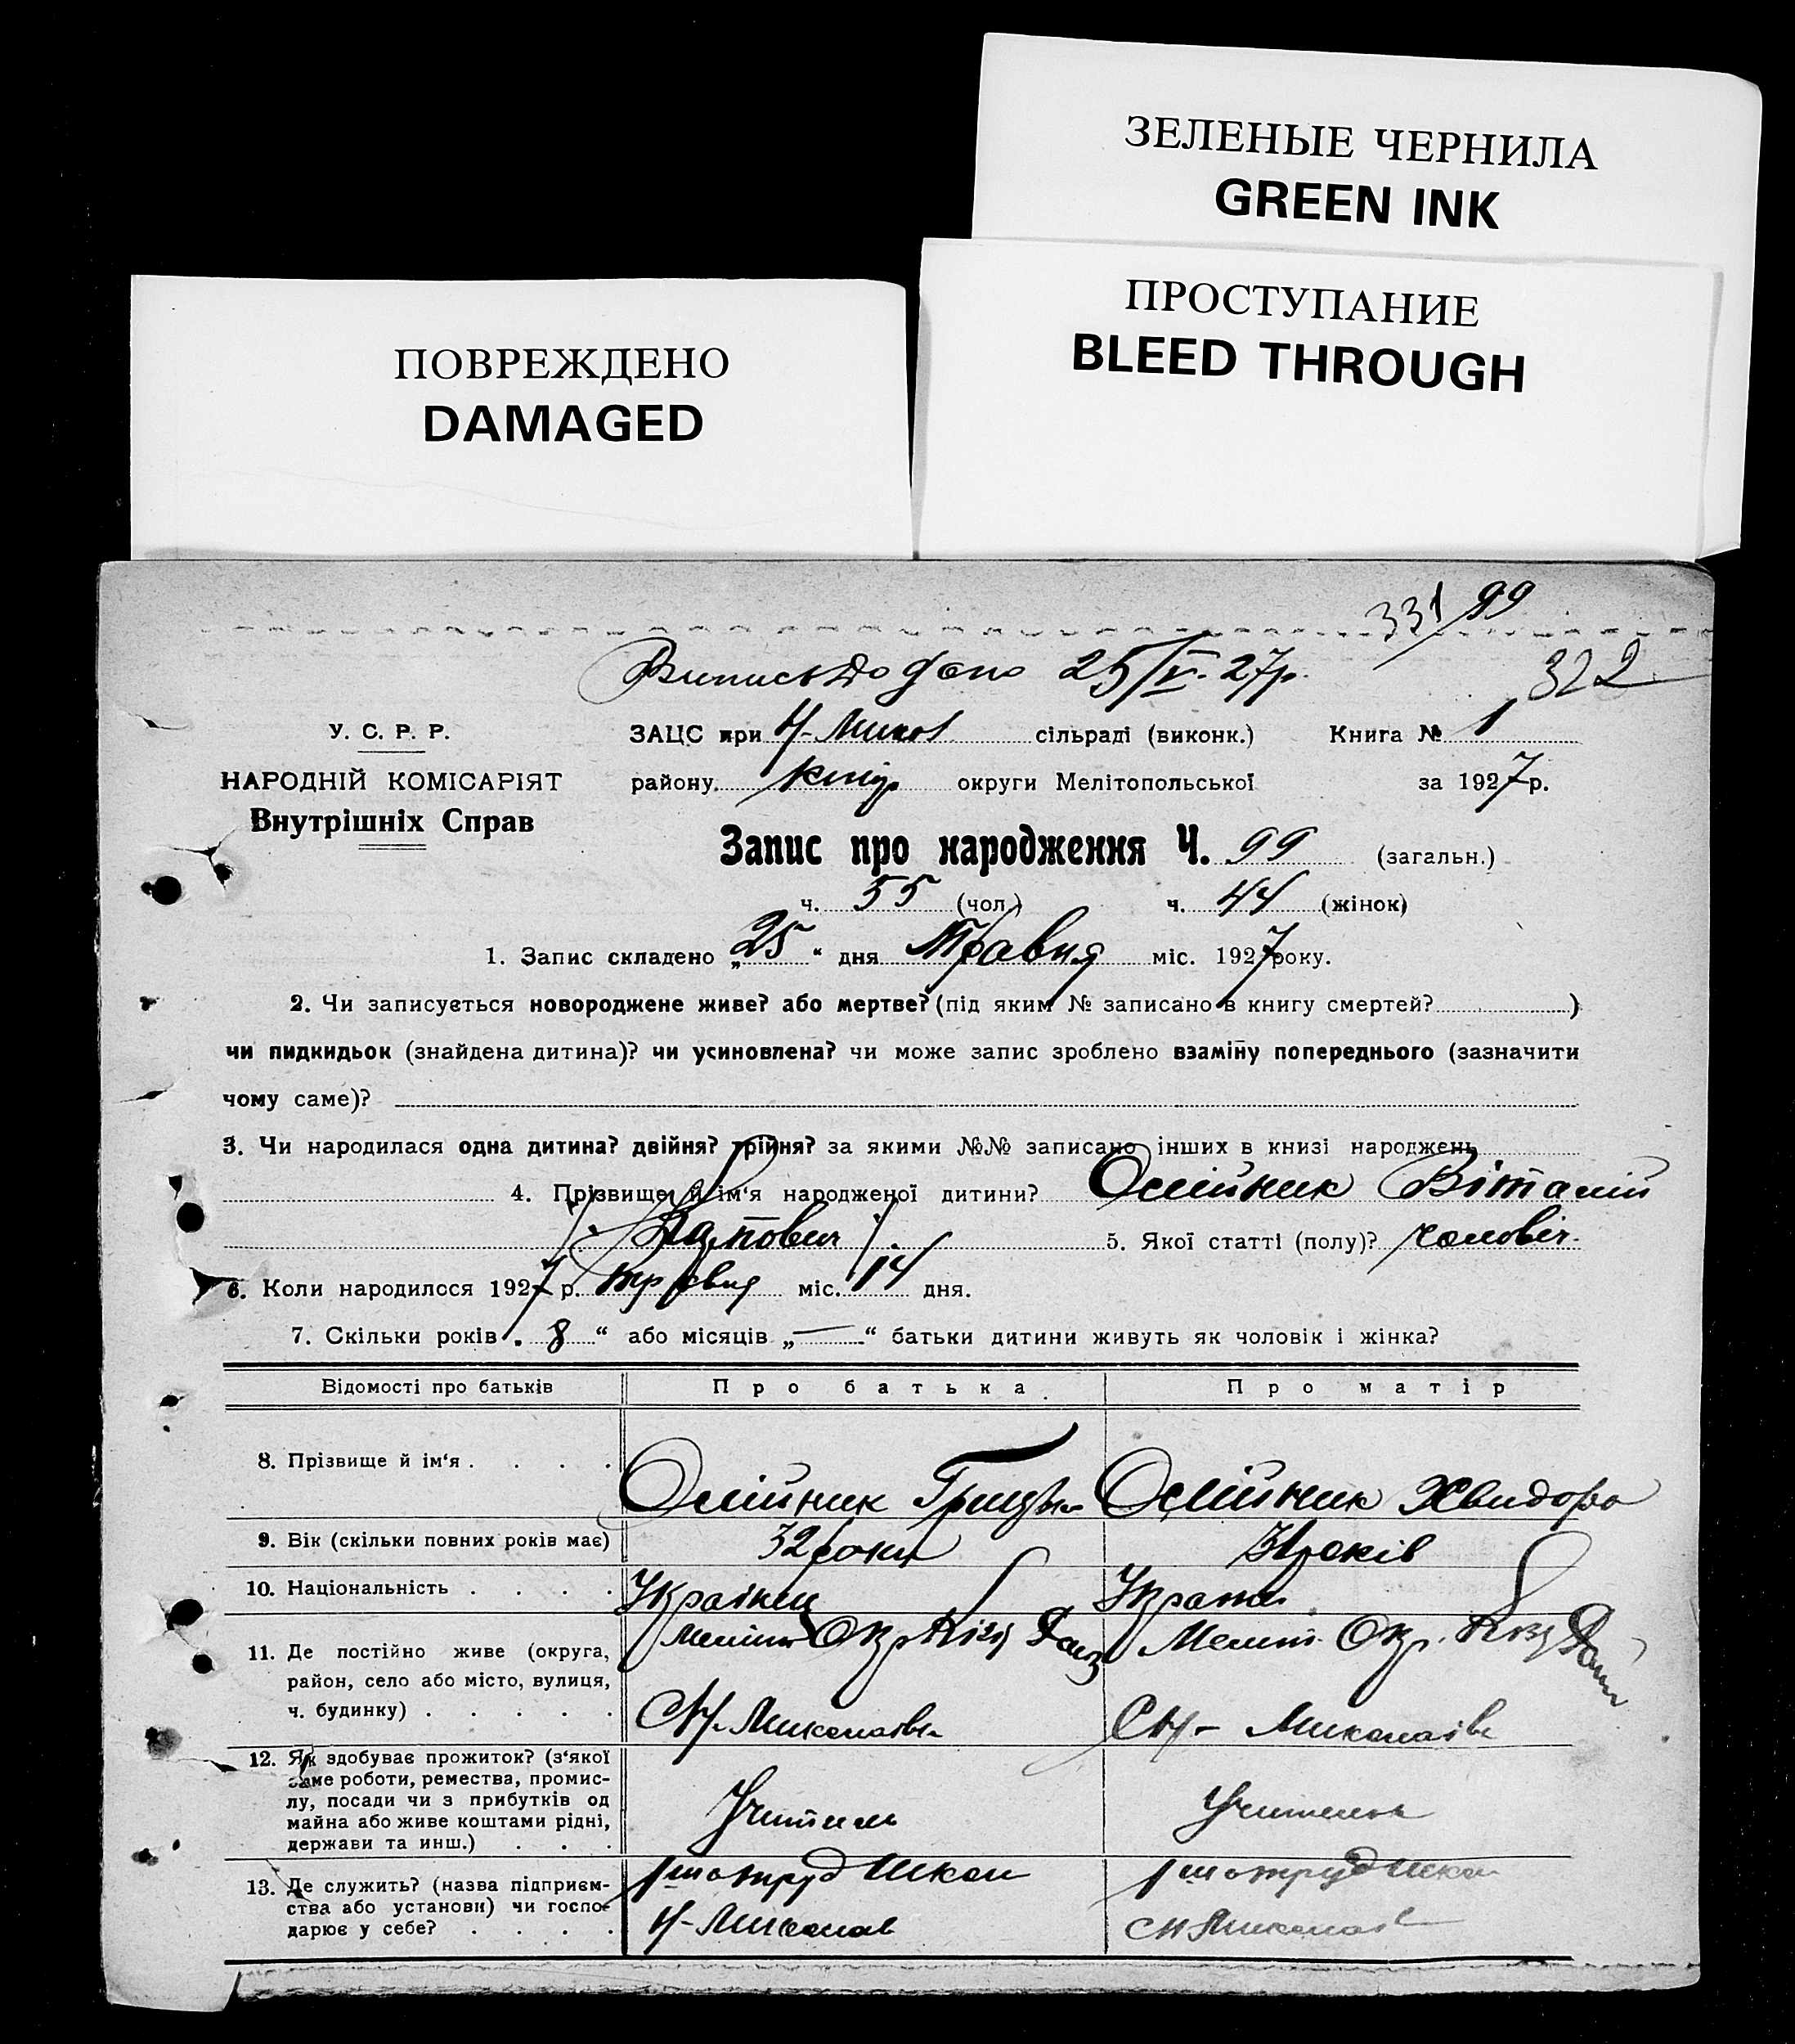 ЗЕЛЕНЫЕ ЧЕРНИЛА
GREEN INK
ПРОСТУПАНИЕ
BLEED THROUGH
ПОВРЕЖДЕНО
DAMAGED
331/99
322
25/V. 27р.
У. С. Р. Р.
НАРОДНІЙ КОМІСАРІЯТ
Внутрішніх Справ
ЗАЦС при Н-Микол сільраді (виконк.) Книга № 1
району округи Мелітопольської за 1927 р.
Запис про народження Ч. 99 (загальн.)
ч. 55 (чол.) ч. 44 (жінок)
1. Запис складено „25“ дня Травня міс. 1927 року.
2. Чи записується новороджене живе? або мертве? (під яким № записано в книгу смертей? )
чи пидкидьок (знайдена дитина)? чи усиновлена? чи може запис зроблено взаміну попереднього (зазначити
чому саме)?
3. Чи народилася одна дитина? двійня? трійня? за якими №№ записано інших в книзі народжень
4. Прізвище й ім‘я народженої дитини? Олійник Віталій
5. Якої статті (полу)? чоловіч.
6. Коли народилося 1927 р. травня міс. 14 дня.
7. Скільки років „8“ або місяців „—“ батьки дитини живуть як чоловік і жінка?
Відомості про батьків Про батька Про матір
8. Прізвище й ім‘я . . . . Олійник Грицько Олійник Хвидора
9. Вік (скільки повних років має) 32 роки 31 років
10. Національність . . . . Українец Украінк
11. Де постійно живе (округа,
район, село або місто, вулиця,
ч. будинку) . . . . .
Меліт Окр
Меліт. Окр.
СН-Миколаівк
СН- Миколаівк
12. Як здобуває прожиток? (з‘якої
саме роботи, ремества, промис-
лу, посади чи з прибутків од
майна або живе коштами рідні,
держави та инш.) . . .
Учитель
13. Де служить? (назва підприєм-
ства або установи) чи госпо-
дарює у себе? . . . .
1шотруд Школ
1шотруд Школ
Н-Миколав
СН Миколаів